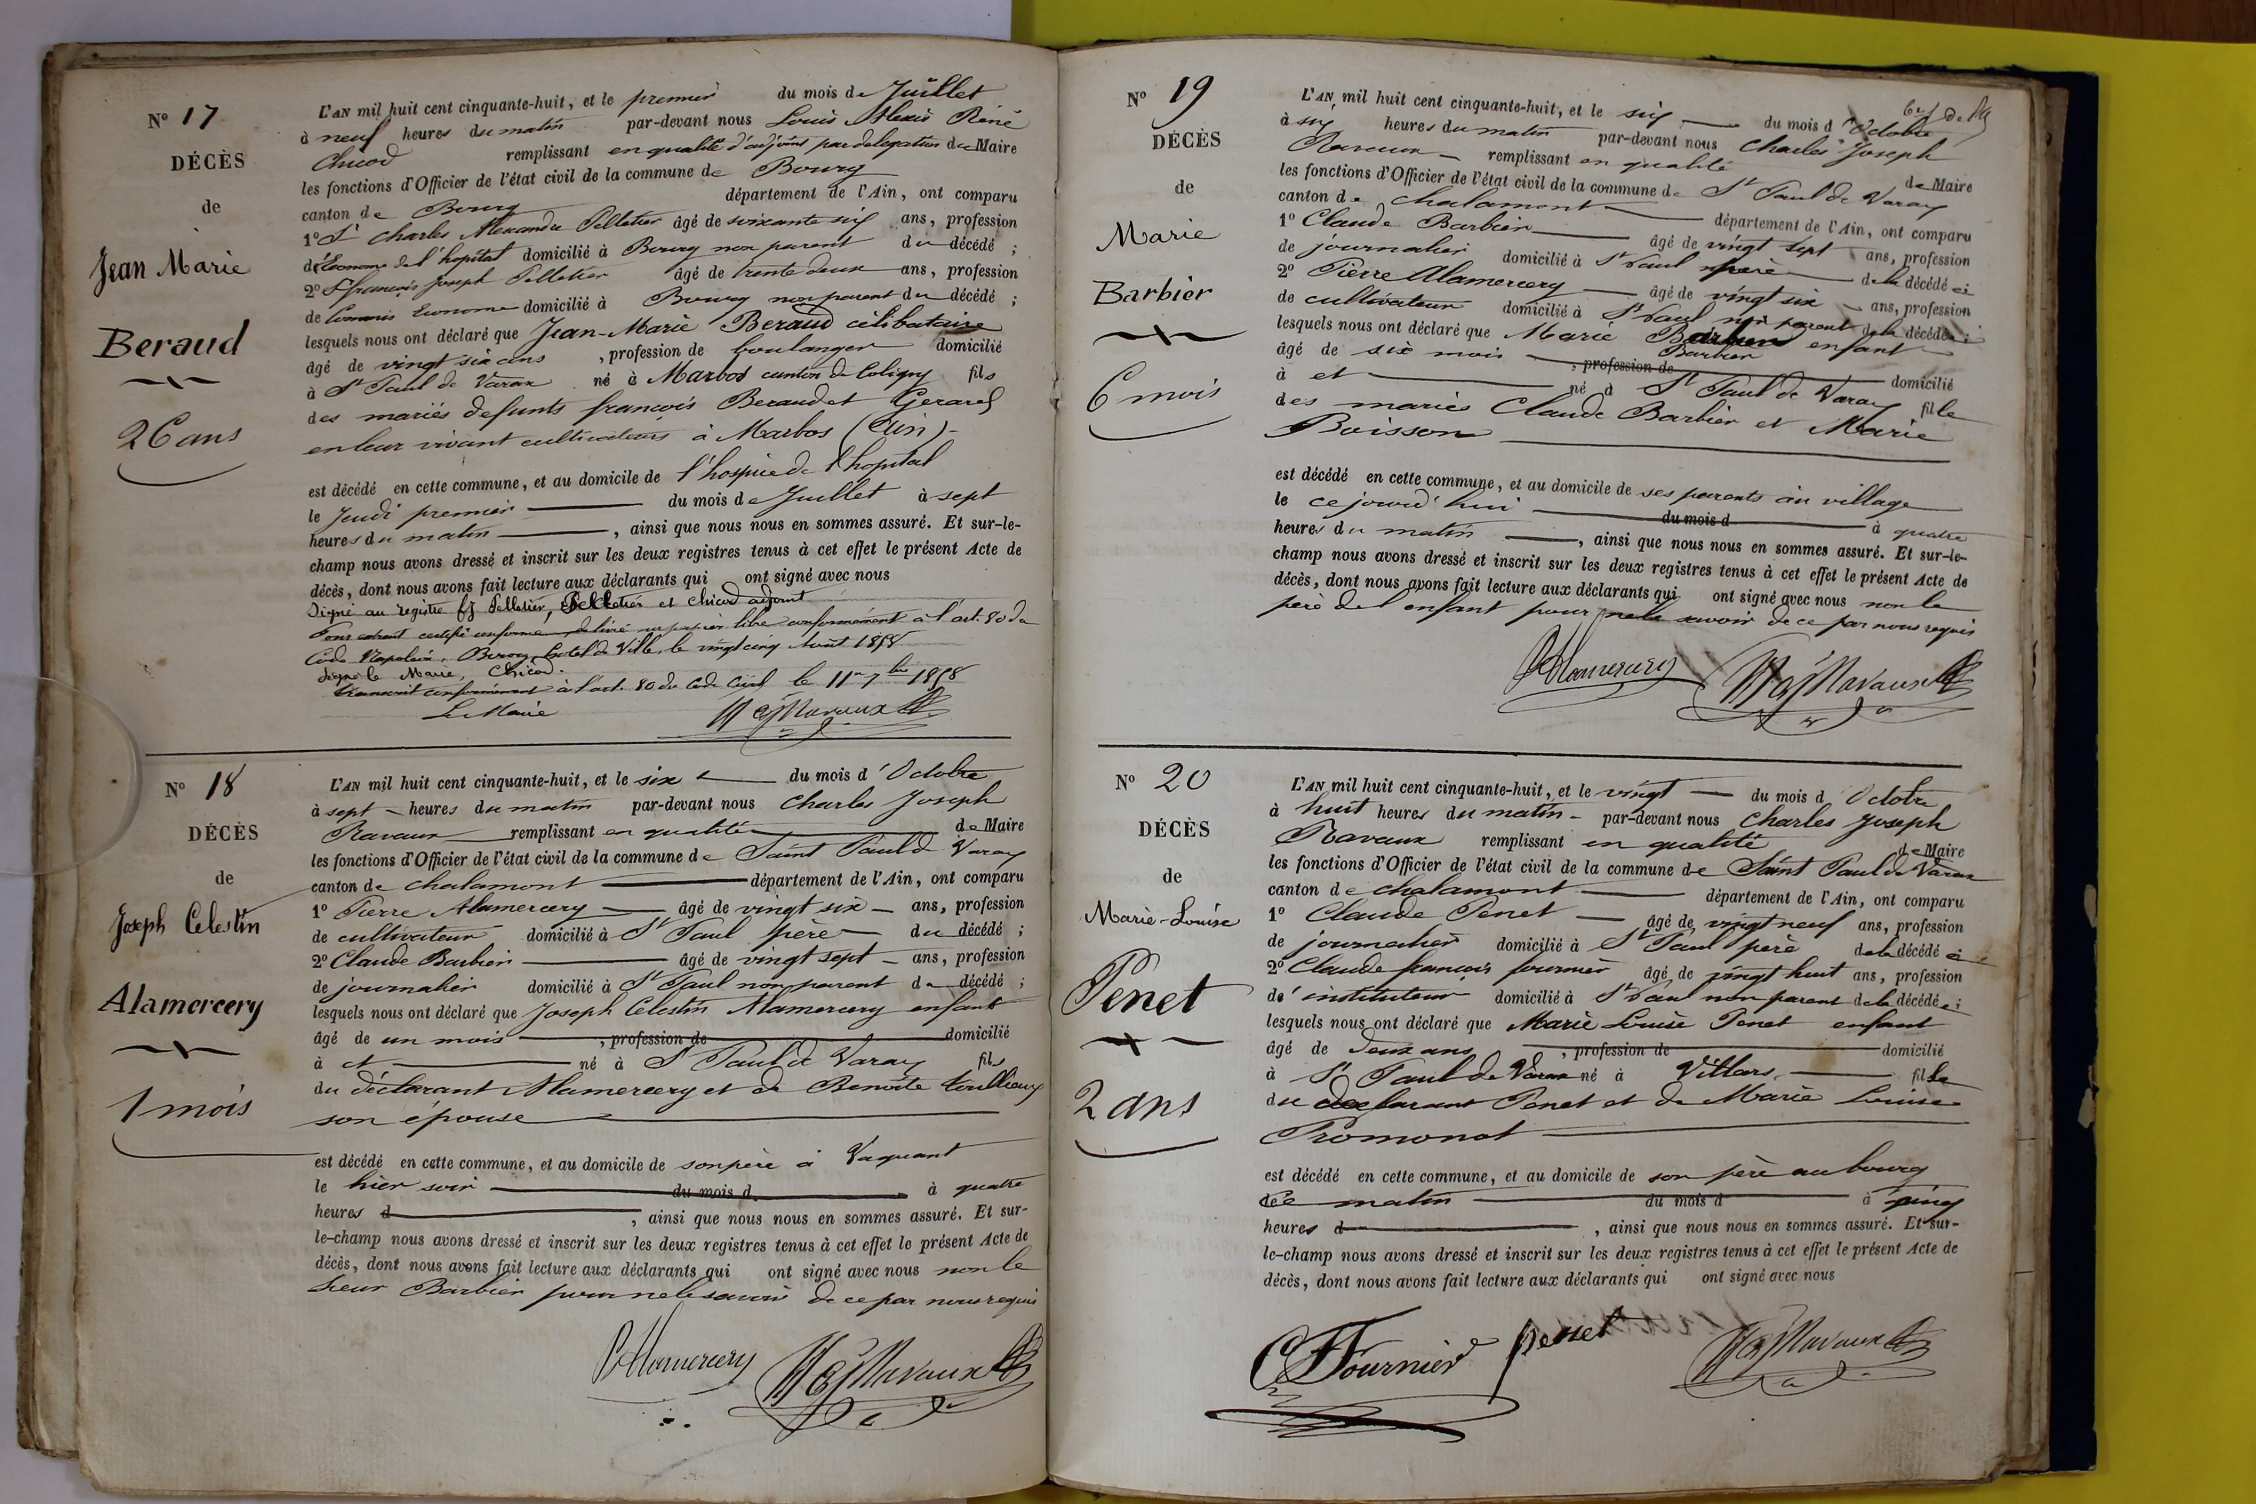 N° 17
DÉCÈS
de
Jean Marie
Beraud
26 ans
L'AN mil huit cent cinquante-huit, et le premier du mois de Juillet
à neuf heures du matin par-devant nous Louis Alexis Réné
Chicod remplissant en qualité d'adjoint par délégation du Maire
les fonctions d'Officier de l'état civil de la commune de Bourg
canton de Bourg département de l'Ain, ont comparu
1° Sr Charles Alexandre Pelletier âgé de soixante six ans, profession
d'Econome de l'hôpital domicilié à Bourg non parent du décédé ;
2° Sr françois Joseph Pelletier âgé de trente deux ans, profession
de Commis Econome domicilié à Bourg non parent du décédé ;
lesquels nous ont déclaré que Jean-Marie Beraud célibataire
âgé de vingt six ans , profession de boulanger domicilié
à St Paul de Varax né à Marbos canton de Coligny fils
des mariés defunts francois Beraud et Gerarel
en leur vivant cultivateurs à Marbos (Ain) -
est décédé en cette commune, et au domicile de l'hospice de l'hopital
le Jeudi premier du mois de Juillet à sept
heures du matin , ainsi que nous nous en sommes assuré. Et sur-le-
champ nous avons dressé et inscrit sur les deux registres tenus à cet effet le présent Acte de
décès, dont nous avons fait lecture aux déclarants qui ont signé avec nous
Signé au registre fj Pelletier, Pelletier et Chicod adjoint
Pour extrait certifié conforme délivré sur papier libre conformément à l'art. 80 du
Code Napoléon. Bourg, hotel de Ville, le vingt cinq Août 1858
Signé le Maire, Chicod.
Transcrit conformément à l'art. 80 du Code Civil le 11 7bre 1858
Le Maire Ravaux
N° 18
DÉCÈS
de
Joseph Celestin
Alamercery
1 mois
L'AN mil huit cent cinquante-huit, et le six du mois d'Octobre
à sept heures du matin par-devant nous Charles Joseph
Ravaux remplissant en qualité de Maire
les fonctions d'Officier de l'état civil de la commune de Saint Paul de Varax
canton de chalamont département de l'Ain, ont comparu
1° Pierre Alamercery âgé de vingt six ans, profession
de cultivateur domicilié à St Paul père du décédé ;
2° Claude Barbier âgé de vingt sept ans, profession
de journalier domicilié à St Paul non parent du décédé ;
lesquels nous ont déclaré que Joseph Celestin Alamercery enfant
âgé de un mois , profession de domicilié
à et né à St Paul de Varax fils
du déclarant Alamercery et de Benoite
son épouse
est décédé en cette commune, et au domicile de son père à Vaquant
le hier soir du mois d à quatre
heures d , ainsi que nous nous en sommes assuré. Et sur-
le-champ nous avons dressé et inscrit sur les deux registres tenus à cet effet le présent Acte de
décès, dont nous avons fait lecture aux déclarants qui ont signé avec nous non le
Sieur Barbier pour ne le savoir de ce par nous requis
Alamercery Ravaux
N° 19
DÉCÈS
de
Marie
Barbier
6 mois
L'AN mil huit cent cinquante-huit, et le six du mois d'Octobre
à six heures du matin par-devant nous Charles Joseph
Ravaux remplissant en qualité de Maire
les fonctions d'Officier de l'état civil de la commune de St Paul de Varax
canton de chalamont département de l'Ain, ont comparu
1° Claude Barbier âgé de vingt sept ans, profession
de journalier domicilié à St Paul père de la décédée
2° Pierre Alamercery âgé de vingt six ans, profession
de cultivateur domicilié à St Paul non parent de la décédée ;
lesquels nous ont déclaré que Marie Barbier enfant
Barbier
âgé de six mois , profession de domicilié
à et né à St Paul de Varax fille
des mariés Claude Barbier et Marie
Buisson
est décédé en cette commune, et au domicile de ses parents au village
le ce jourd'hui du mois d à quatre
heures du matin , ainsi que nous nous en sommes assuré. Et sur-le-
champ nous avons dressé et inscrit sur les deux registres tenus à cet effet le présent Acte de
décès, dont nous avons fait lecture aux déclarants qui ont signé avec nous non le
père de l'enfant pour ne le savoir de ce par nous requis
Alamercery Ravaux
N° 20
DÉCÈS
de
Marie-Louise
Penet
2 ans
L'AN mil huit cent cinquante-huit, et le vingt du mois d'Octobre
à huit heures du matin par-devant nous Charles Joseph
Ravaux remplissant en qualité de Maire
les fonctions d'Officier de l'état civil de la commune de Saint Paul de Varax
canton de chalamont département de l'Ain, ont comparu
1° Claude Penet âgé de vingt neuf ans, profession
de journalier domicilié à St Paul père de la décédée
2° Claude françois fournier âgé de vingt huit ans, profession
d'instituteur domicilié à St Paul non parent de la décédée ;
lesquels nous ont déclaré que Marie Louise Penet enfant
âgé de deux ans , profession de domicilié
à St Paul de Varax né à Villars fille
du declarant Penet et de Marie Louise
Promonet
est décédé en cette commune, et au domicile de son père au bourg
ce matin du mois d à cinq
heures d , ainsi que nous nous en sommes assuré. Et sur-
le-champ nous avons dressé et inscrit sur les deux registres tenus à cet effet le présent Acte de
décès, dont nous avons fait lecture aux déclarants qui ont signé avec nous
CF Fournier penet Ravaux